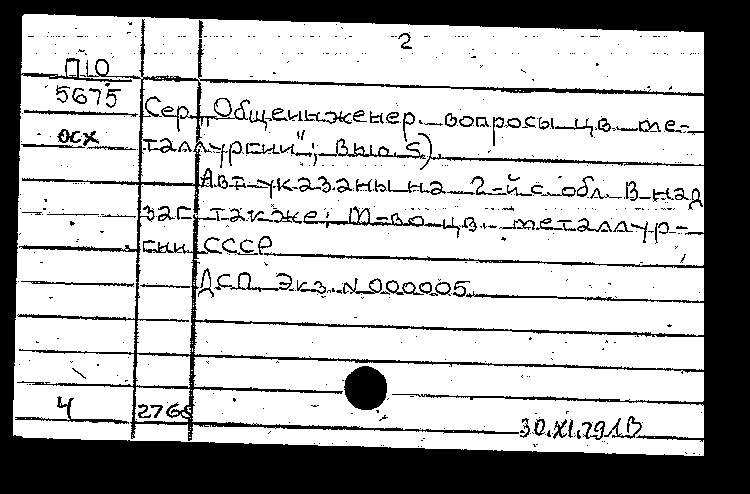 2
П10
5675
осх
Сер. „Общеинженер. вопросы цв. ме-
таллургии"; вып. 5).
Авт. указаны на 2-й с. обл. В над
заг. также: М-во цв. металлур-
гии СССР
ДСП. Экз. N 000005
4 2766
30.XI.79